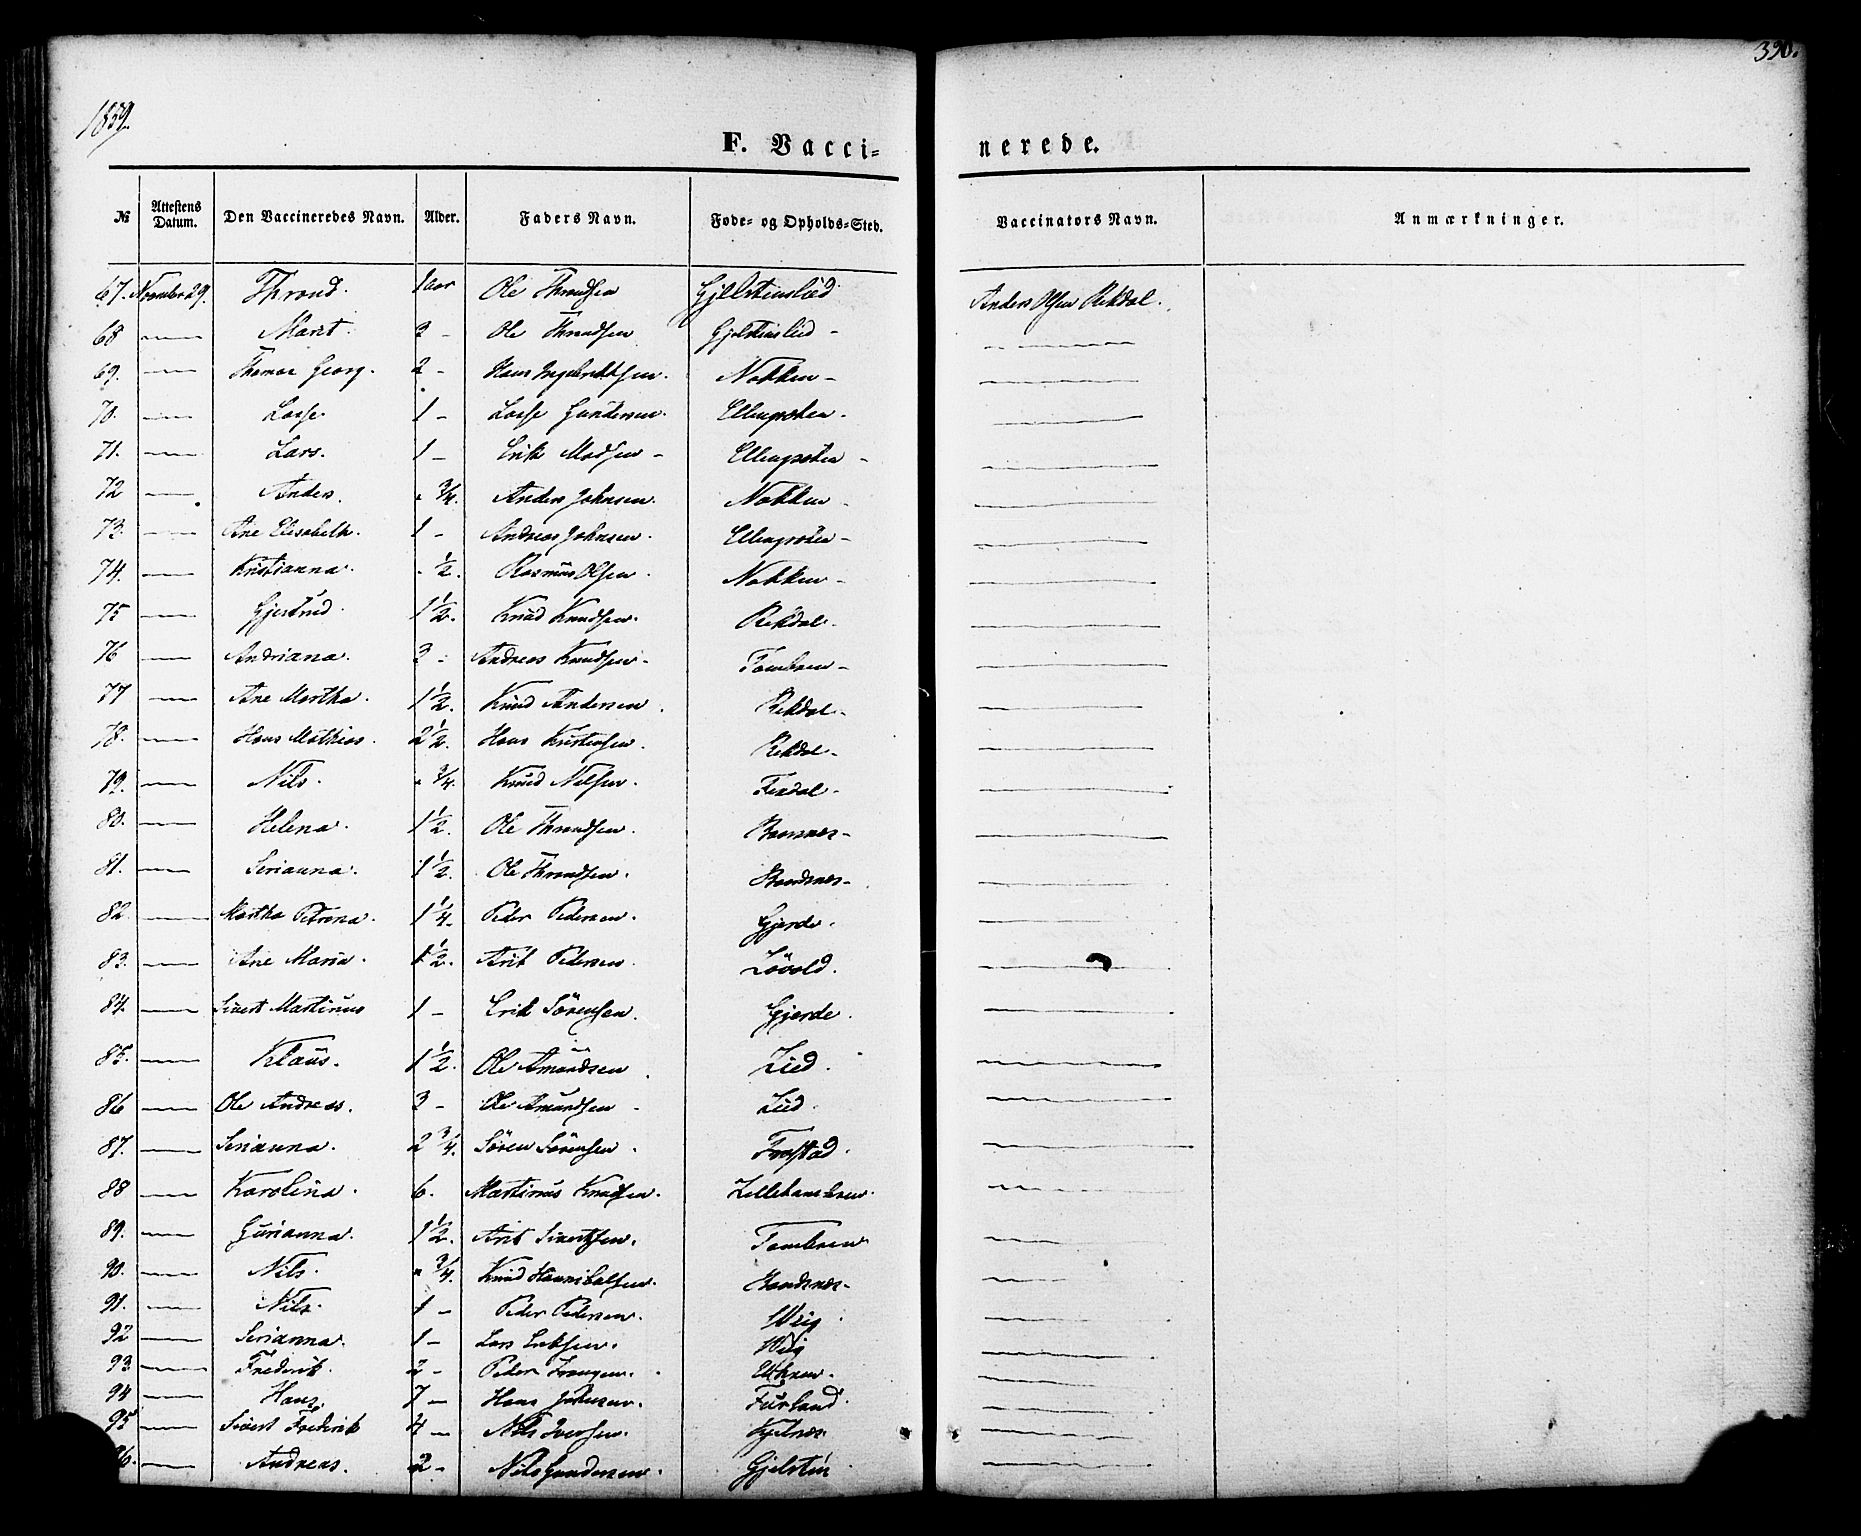 390.
1859.
F. Vacci=
nerede.
№ Attestens Datum. Den Vaccineredes Navn. Alder. Faders Navn. Føde- og Opholds-Sted. Vaccinators Navn. Anmærkninger.
67. November 29. Thrond. 1 aar Ole Throndsen Gjelstenslied Anders Olsen Rekdal.
68 — Marit. 3 - Ole Throndsen Gjelstenslied - —
69. — Thomas Georg. 2 - Hans Ingebrichtsen. Nakken - —
70. — Lasse. 1 - Lasse Gundersen. Ellingsøten - —
71. — Lars. 1 - Erik Madsen - Ellingsøten - —
72 — Anders. " 3/4. Anders Johnsen. Nakken - —
73. — Ane Elisabeth. 1 - Andreas Johnsen. Ellingsøten - —
74. — Kristianna. - 1/2. Rasmus Olsen. Nakken - —
75 — Gjertrud. 1 1/2. Knud Knudsen. Rekdal. —
76 — Andriana. 3 - Andreas Knudsen - Tombren - —
77 — Ane Martha. 1 1/2. Knud Andersen. Rekdal - —
78. — Hans Mathias. 2 1/2. Hans Kristensen. Rekdal - —
79. — Nils. " 3/4. Knud Nilsen. Fixdal - —
80. — Helena. 1 1/2. Ole Throndsen. Baasnes - —
81. — Serianna. 1 1/2. Ole Throndsen. Baadsnes - —
82. — Martha Petrona. 1 1/4. Peder Pedersen. Gjerde. —
83. — Ane Maria. 1 1/2. Arit Pedersen. Løvold. —
84. — Sivert Martinus 1 - Erik Sørensen. Gjerde. —
85. — Klaus. 1 1/2. Ole Amundsen. Lied. —
86 — Ole Andreas. 3 - Ole Amundsen - Lied. —
87. — Serianna. 2 3/4. Søren Sørensen. Frostad. —
88 — Karolina. 6. Martinus Knudsen. —
89. — Gurianna. 1 1/2. Arit Sivertsen. Tombren —
90. — Nils. " 3/4. Knud Hannibalsen. Baadsnes - —
91. — Nils. 1 - Peder Pedersen. Wiig. —
92 — Serianna. 1 - Lars Eriksen. Wiig —
93. — Frederik. 2 - Peder —
94 — Hans. 7 - Hans Johnsen. Furland. —
95 — Sivert Frederik 4 - Nils Iversen. Kjelnes —
96. — Andreas. 2 - Nils Gundersen. Gjelsten. —